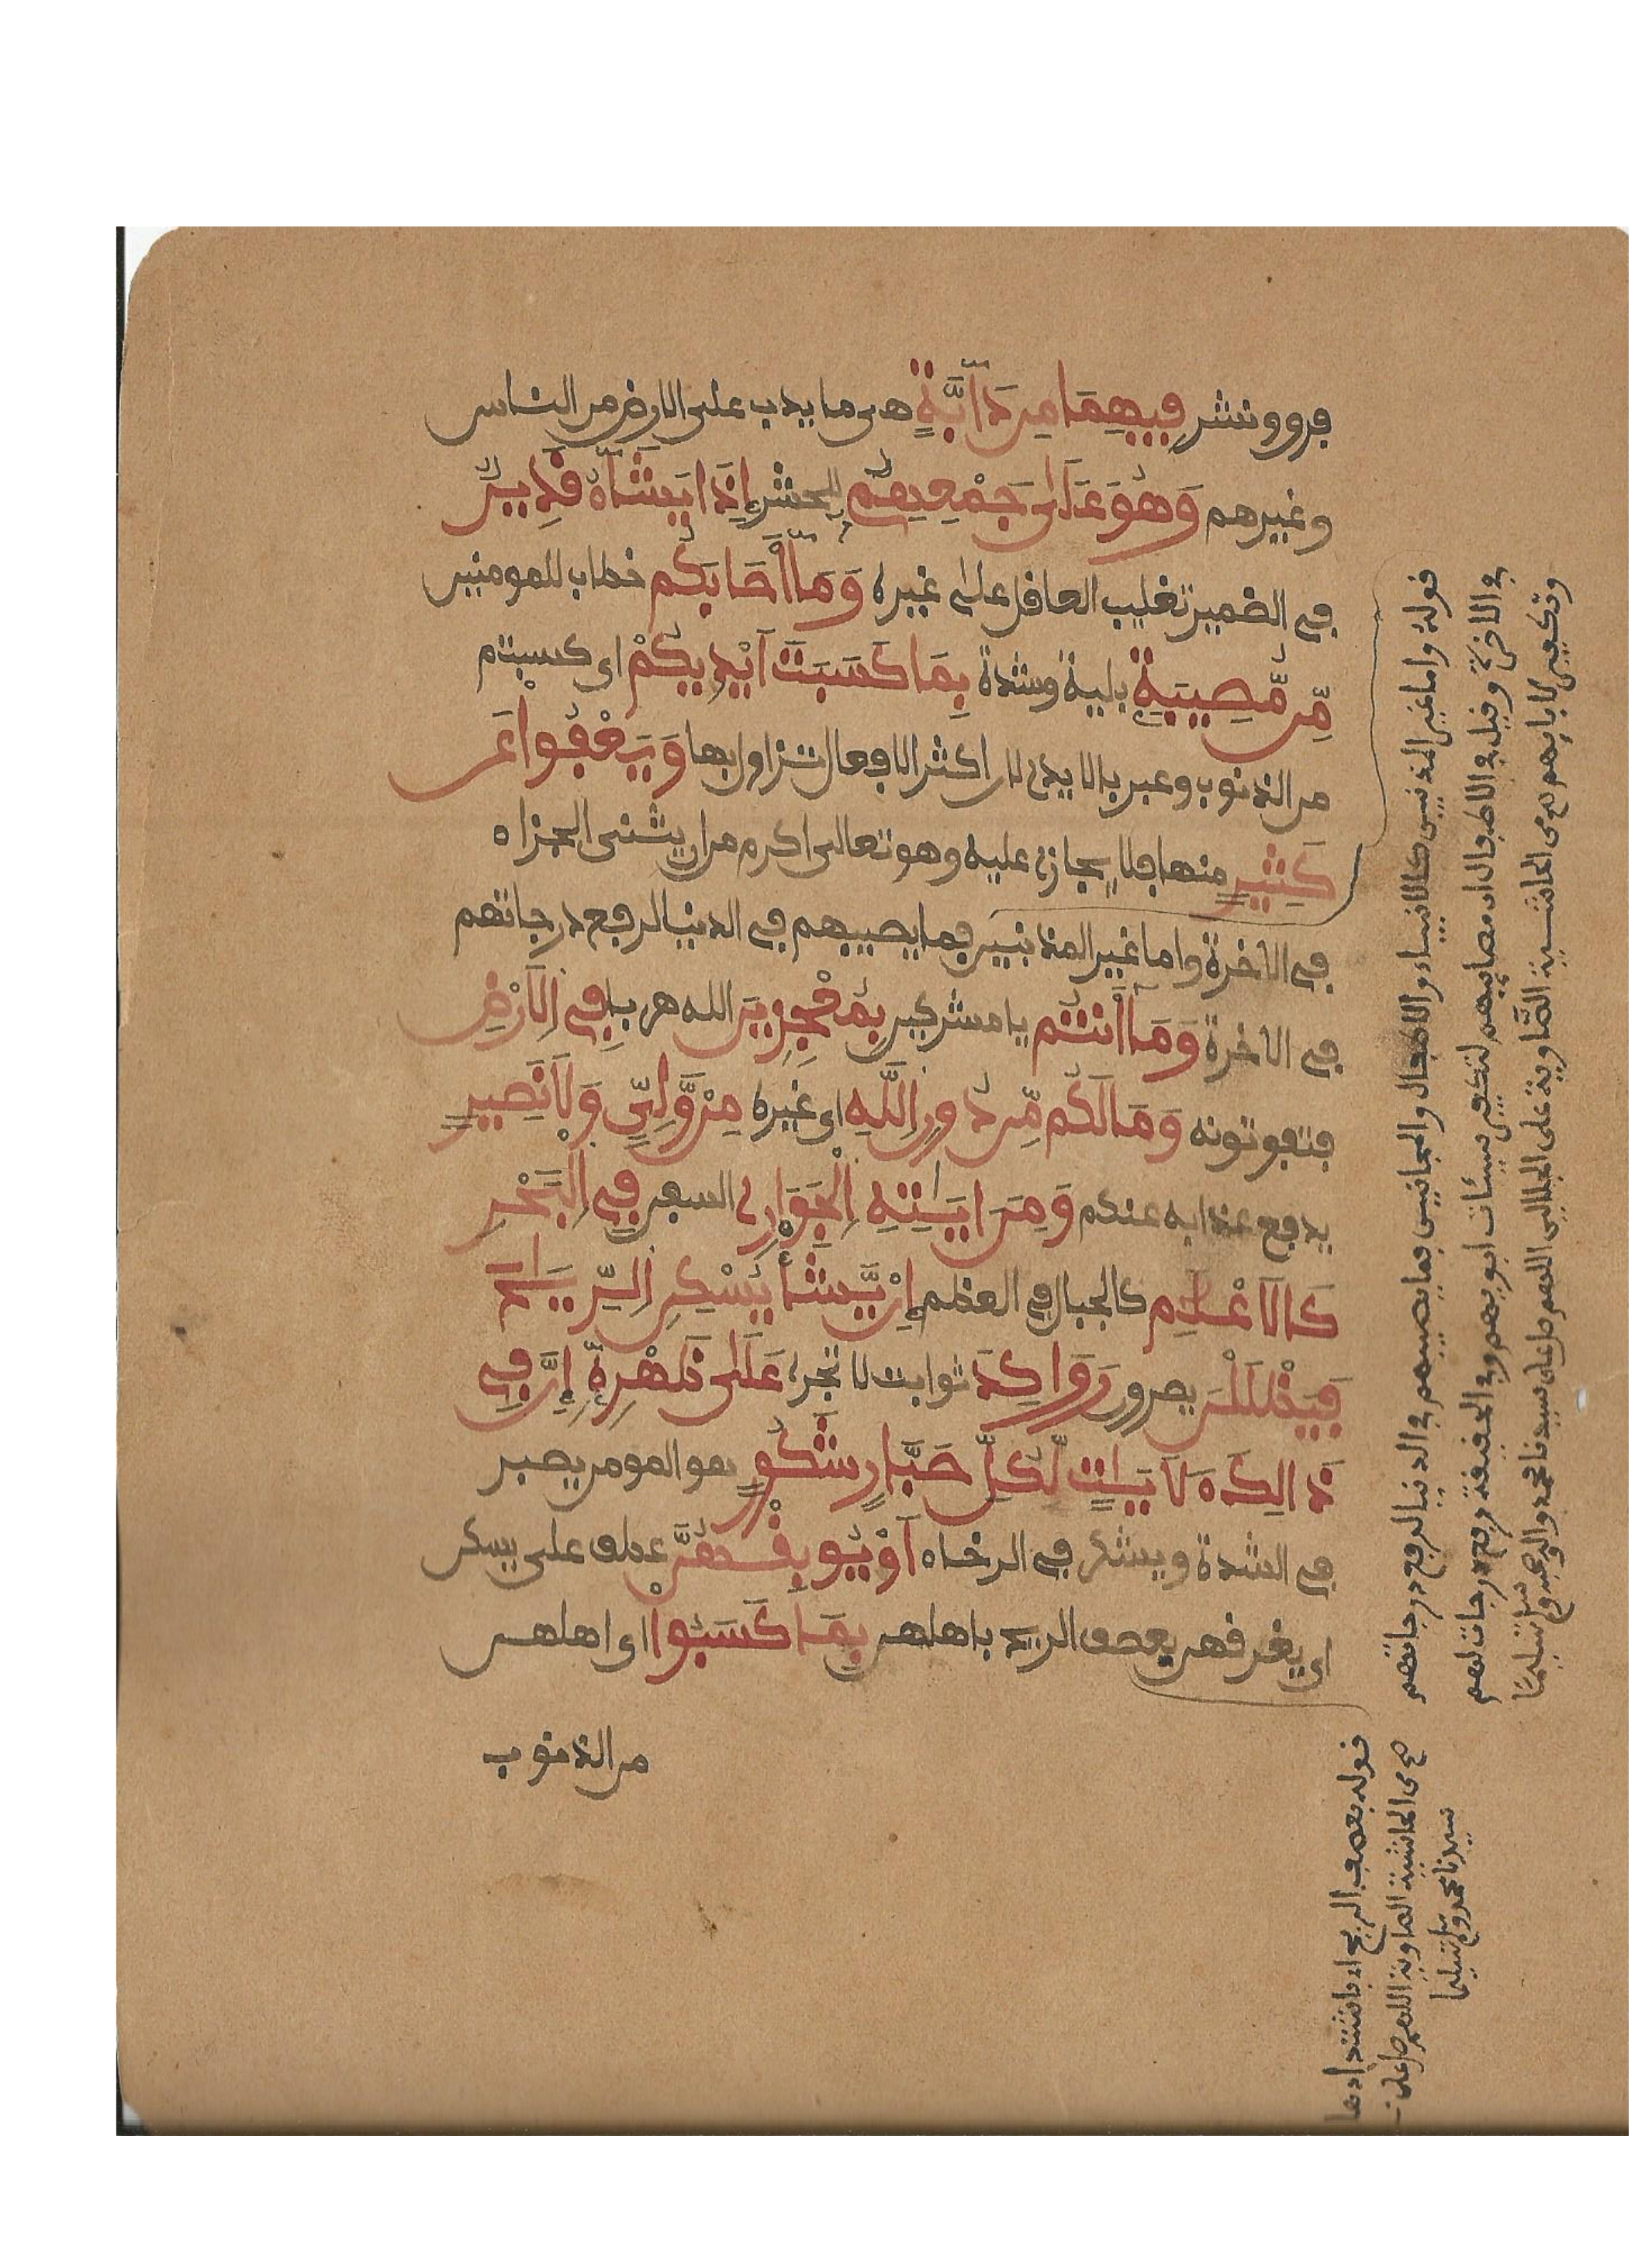 فرق ونشر فِيهِمَا مِن دَآبَّةٍ هى ما يدب على الارض من الناس
وغيرهم وَهُوَ عَلَىٰ جَمْعِهِمْ للحشر إِذَا يَشَآءُ قَدِيرٌ
فى الضمير تغليب العاقل على غيره وَمَآ أَصَابَكُم خطاب للمومنين
مِّن مُّصِيبَةٍ بلية وشدة بِمَا كَسَبَتَ اَيْدِيكُمْ اى كسبتم
من الذنوب وعبر بالايدى لان اكثر الافعال تزاول بها وَيَعْفُواْ عَن
كَثِيرٍ منها فلا يجازى عليه وهو تعالى اكرم من ان يثنى الجزاء
فى الاخرة واما غير المذنبين فما يصيبهم فى الدنيا لرفع درجاتهم
فى الاخرة وَمَآ أَنتُم يا مشركين بِمُعْجِزِينَ الله هربا فِى اِلَارْضِ
فتفوتونه وَمَا لَكُم مِّن دُونِ اِللَّهِ اى غيره مِنْ وَّلِىٍّ وَلَا نَصِيرٍ
يدفع عذابه عنكم وَمِنَ ايَٰتِهِ اِلْجَوَارِۦ السفن فِى اِلْبَحْرِ
كَالَاعْلَٰمِ كالجبال فى العظم إِنْ يَّشَأْ يُسْكِنِ اِلرِّيَٰحَ
فَيَظْلَلْنَ يصرن رَوَاكِدَ ثوابت لا تجرى عَلَىٰ ظَهْرِهِ إِنَّ فِى
ذَٰلِكَ لَأَيَٰتٍ لِّكُلِّ صَبَّارٍ شَكُورٍ هو المومن يصبر
فى الشدة ويشكر فى الرخاء اَوْ يُوبِقْهُنَّ عطف على يسكن
اى يغرقهن بعصف الريح باهلهن بِمَا كَسَبُواْ اى اهلهن
من الذنوب
قوله واما غير المذنبين كالانبياء والاطفال والمجانين فما يصيبهم فى الدنيا لرفع درجاتهم
فى الاخرة وقيل فى الاطفال ان مصايبهم لتكفير سيئات ابويهم وفى الحقيقة رفع درجات لهم
وتكفير لابايهم صح من الحاشية الصاوية على الجلالين اللهم صل على سيدنا محمد واله وصحبه وسلم تسليما
قوله بعصف الريح اى باشتدادها
صح من الحاشية الصاوية اللهم صل على
سيدنا محمد وسلم تسليما